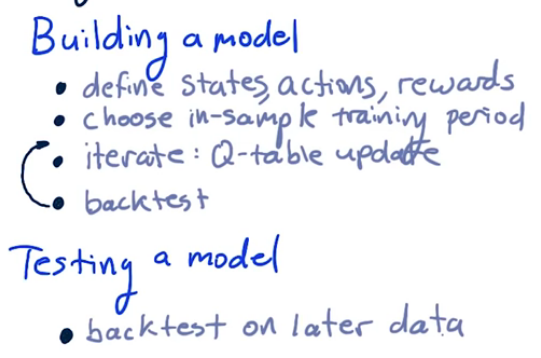 Building a model
• define states, actions, rewards
• choose in-sample training period
• iterate: Q-table update
• backtest
Testing a model
• backtest on later data